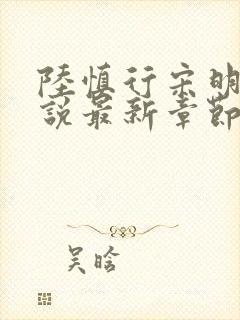 陸慎行宋明
說最新章節
吴晗